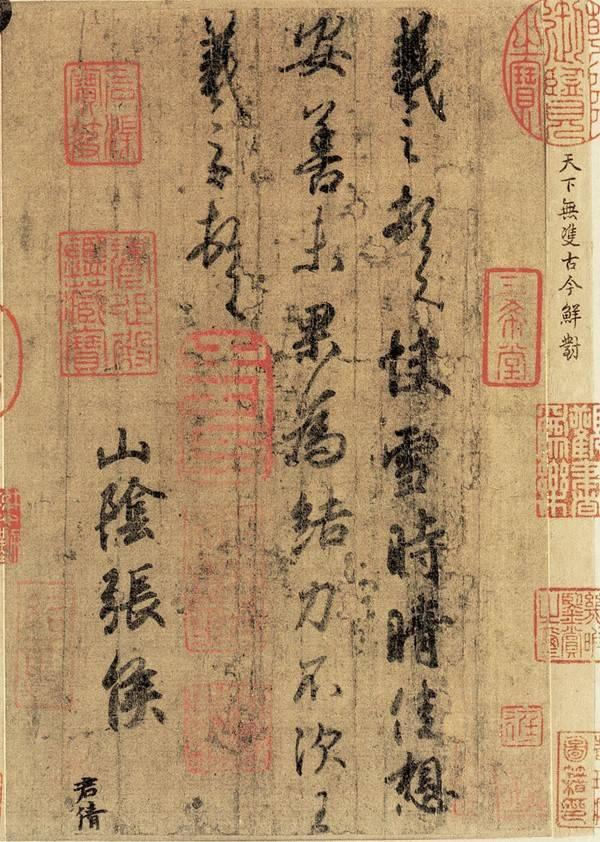 天下無雙古今鮮對
羲之頓首快雪時晴佳想
安善未果為結力不次王
羲之頓首
山陰張侯
君倩
三希堂